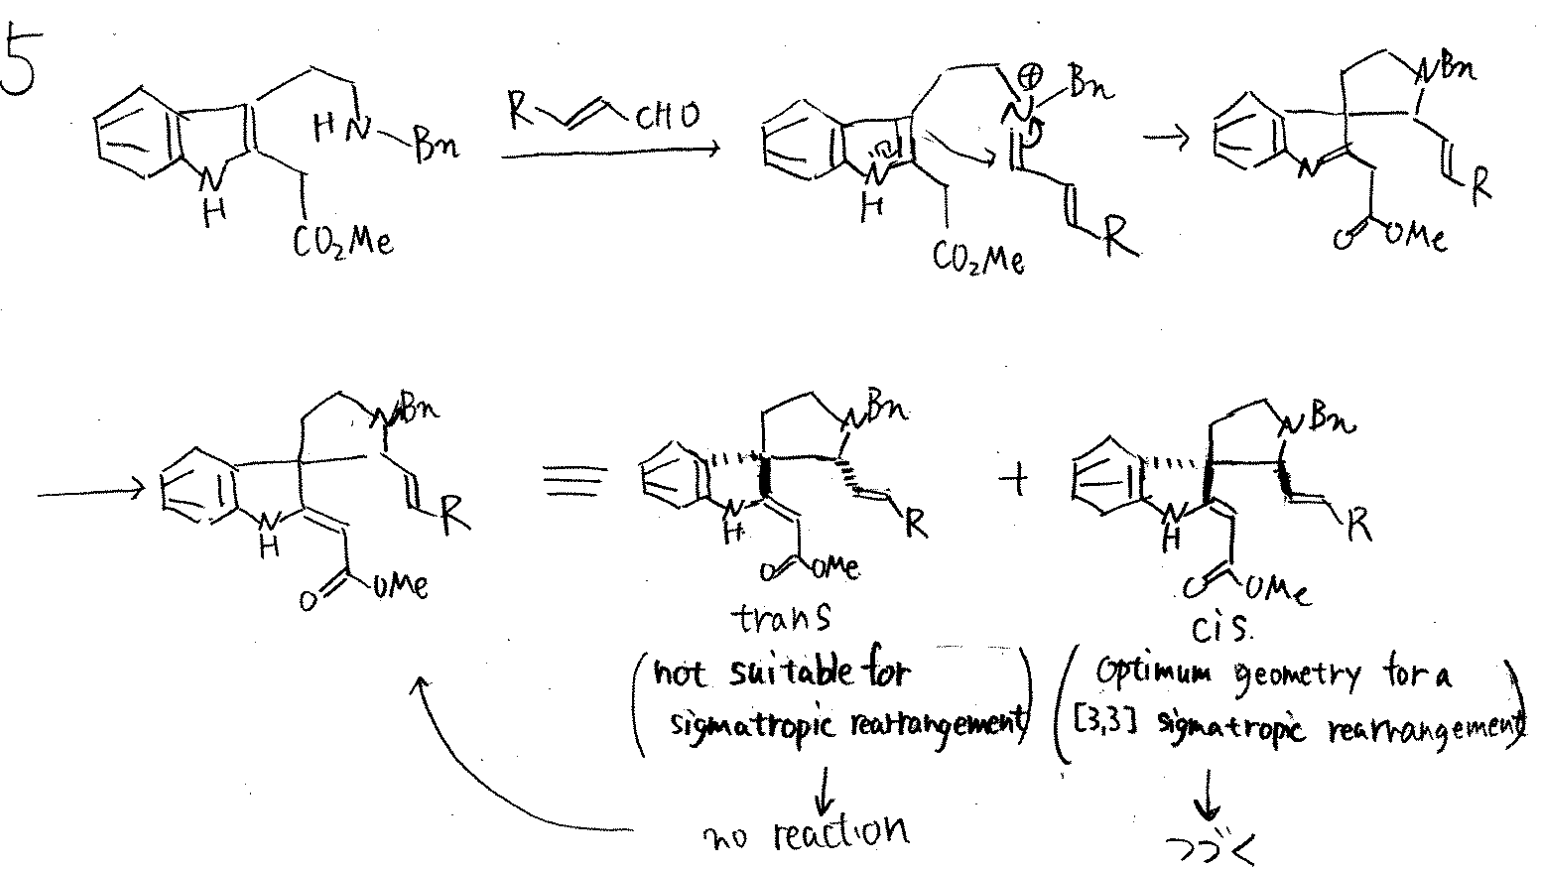 5
H N Bn
N
H
CO₂Me
R CHO
⊕
N Bn
N
H
CO₂Me
R
NBn
N
R
O OMe
NBn
N
H
R
O OMe
NBn
N
H
R
O OMe
trans
(not suitable for
sigmatropic rearrangement)
no reaction
+
NBn
N
H
R
O OMe
cis.
(optimum geometry for a
[3,3] sigmatropic rearrangement)
つづく